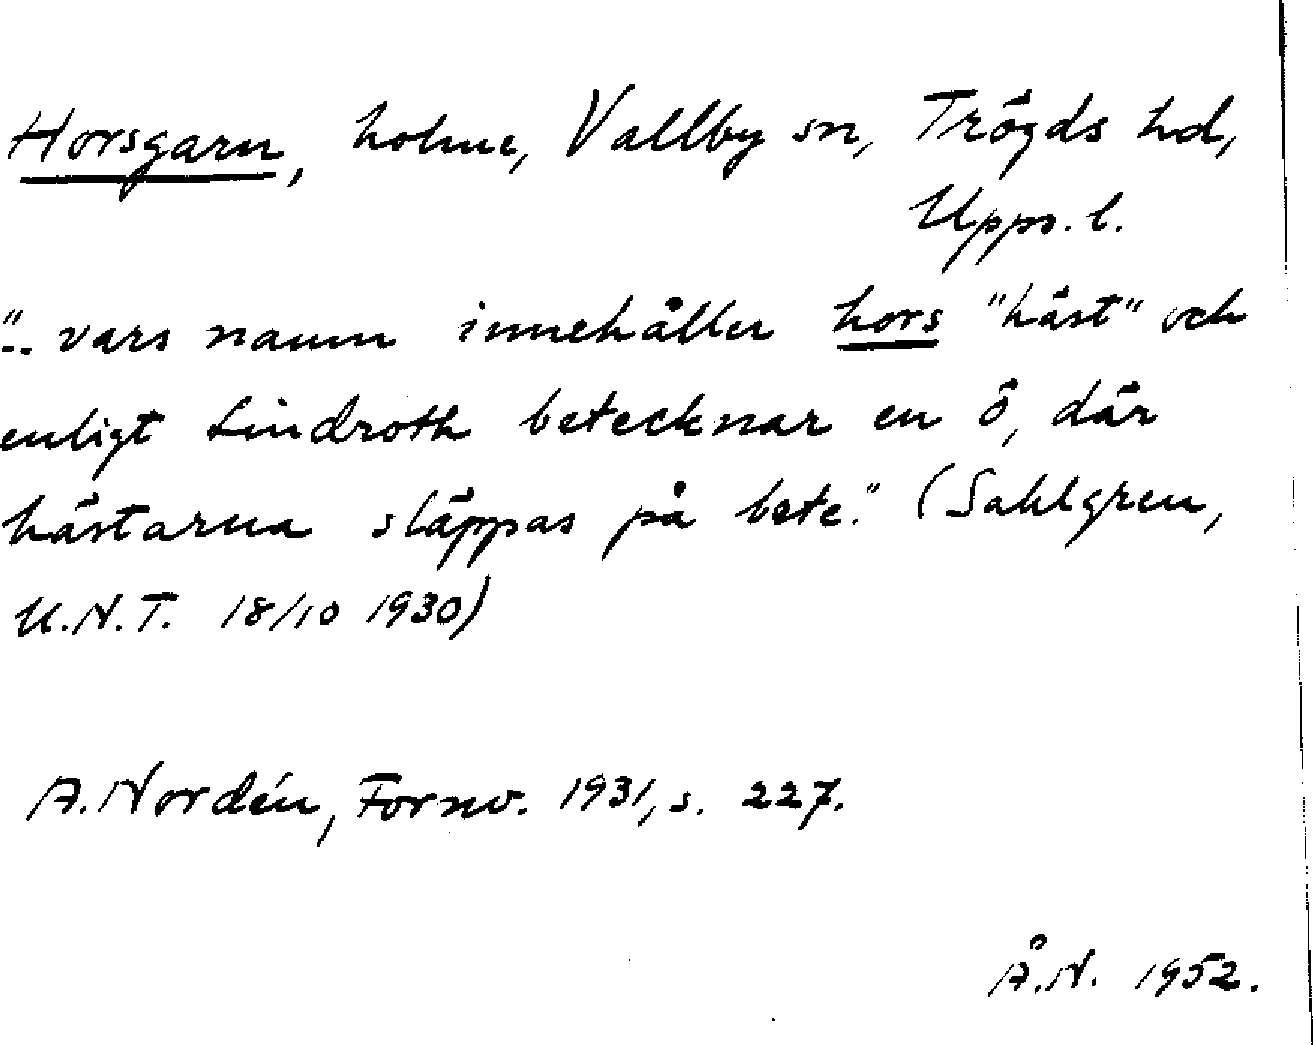 Horsgarn, holme, Vallby sn, Trögds hd,
Upps. l.
".. vars namn innehåller hors "häst" och
enligt Lindroth betecknar en ö, där
hästarna släppas på bete." (Sahlgren,
U.N.T. 18/10 1930)
A. Nordén, Fornv. 1931, s. 227.
Å.N. 1952.